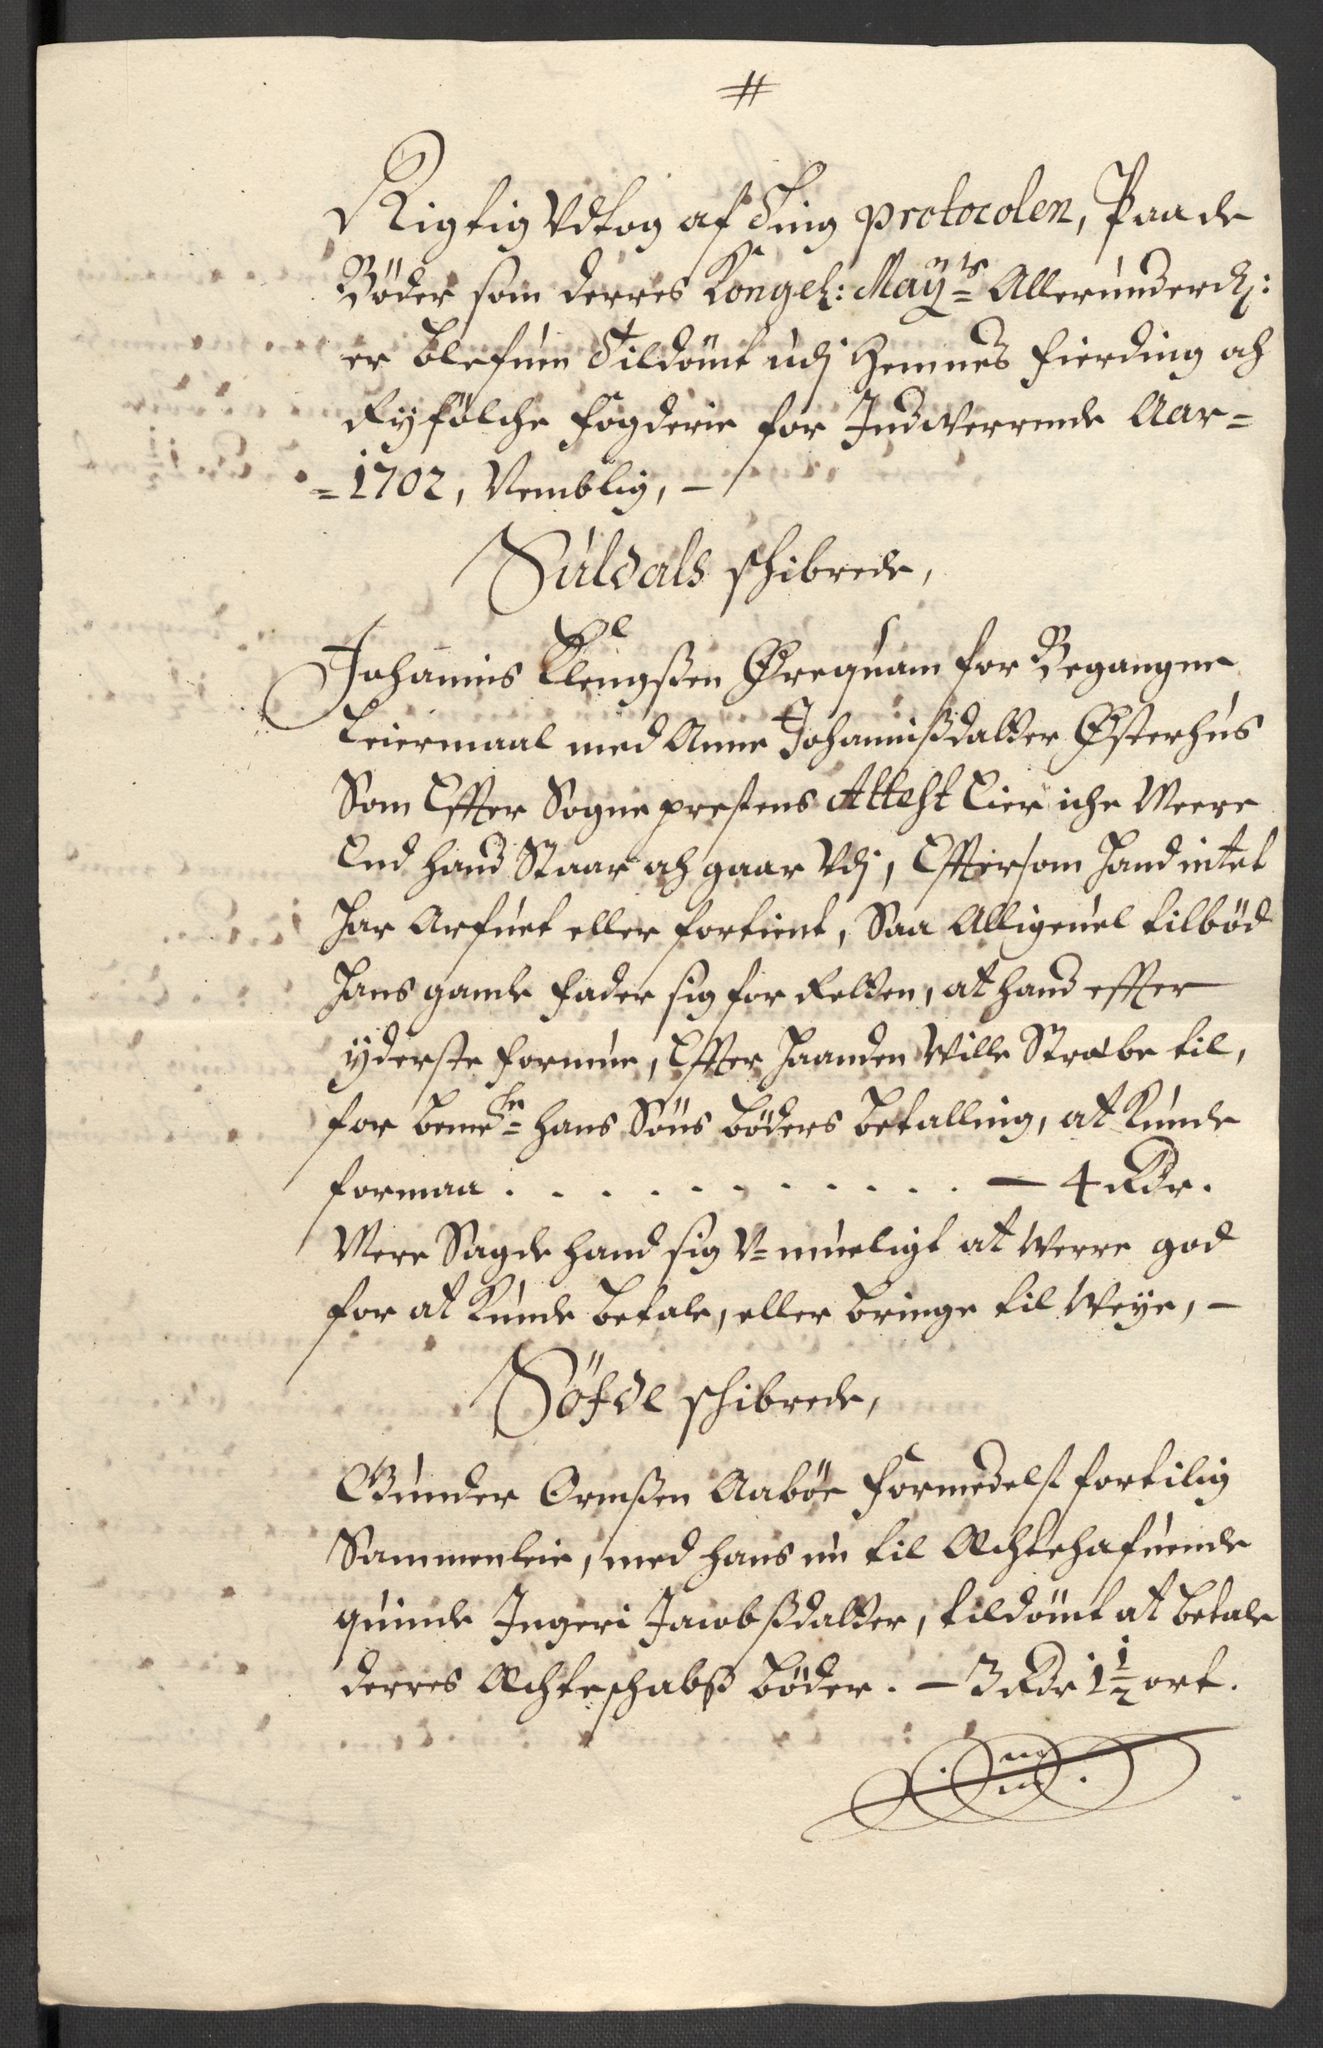 #
Rigtig Vdtog af Ting protocolen, Paa de
Böder som derres Kongel: Mayts Allerunderd:
er blefuen Tildömt udj Hemnes fierding och
Ryfölche fogderie for Indwerrende Aar=
=1702, Nemblig, –
Suldals schibrede,
Johannis Klengßen Ørequam for Begangne
Leiermaal med Anne Johannißdatter Østerhus
Som Effter Sogneprestens Attest Eier iche Meere
End hand Staar och gaar Vdj, Efftersom hand intet
har Arfuet eller fortient, Saa Alligeuel tilböd
hans gamle fader sig for Retten, at hand effter
yderste formue, Effter haanden Wille Stræbe til,
for beme.te hans Söns böders betalling, at Kunde
formaa . . . . . . . . . . . – 4 Rdr.
Mere Sagde hand sig V=mueligt at Werre god
for at Kunde betale, eller bringe til Weye, –
Söfde schibrede,
Gunder Ormßen Aaböe formedelst fortilig
Sammenleie, med hans nu til Æchtehafuende
quinde Ingeri Jacobßdatter, tildömt at betale
derres Æchteschabß böder. – 3 Rdr 1 1/2 ort.